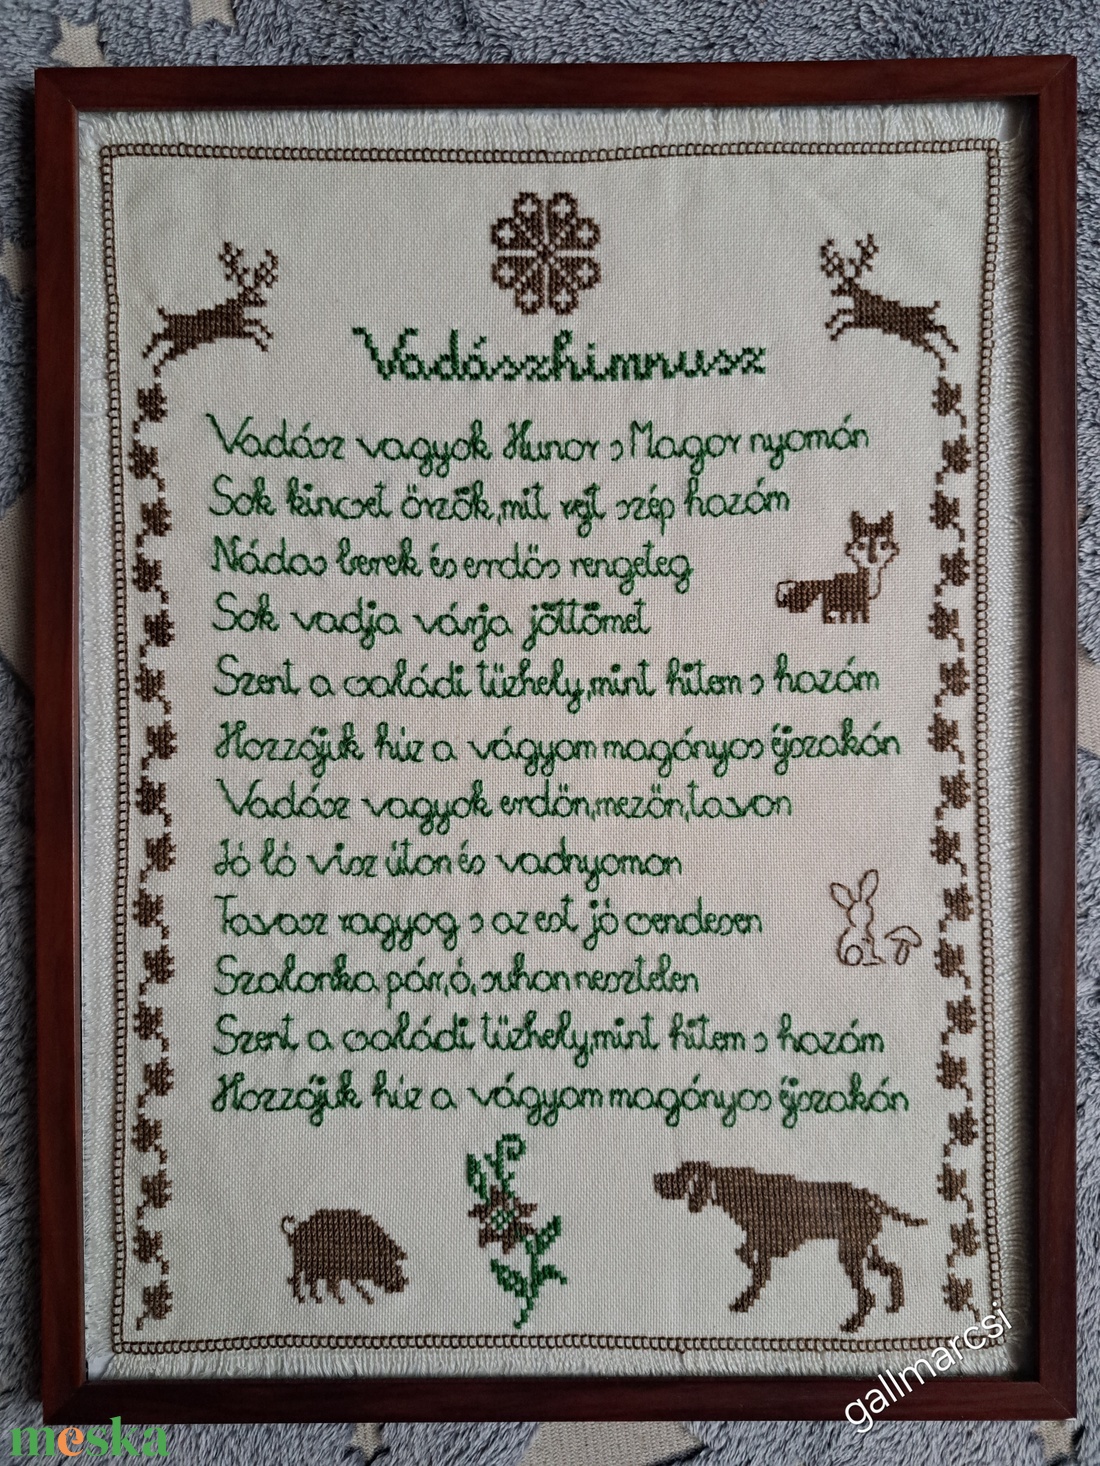 Vadászhimnusz
Vadász vagyok Hunor s Magor nyomán
Sok kincset őrzök, mit rejt szép hazám
Nádas berek és erdős rengeteg
Sok vadja várja jöttömet
Szent a családi tűzhely, mint hitem s hazám
Hozzájuk húz a vágyam magányos éjszakán
Vadász vagyok erdőn, mezőn, tavon
Jó ló visz úton és vadnyomon
Tavasz ragyog s az est jó csendesen
Szalonka pár, ó, suhan nesztelen
Szent a családi tűzhely, mint hitem s hazám
Hozzájuk húz a vágyam magányos éjszakán
gallmarcsi
meska